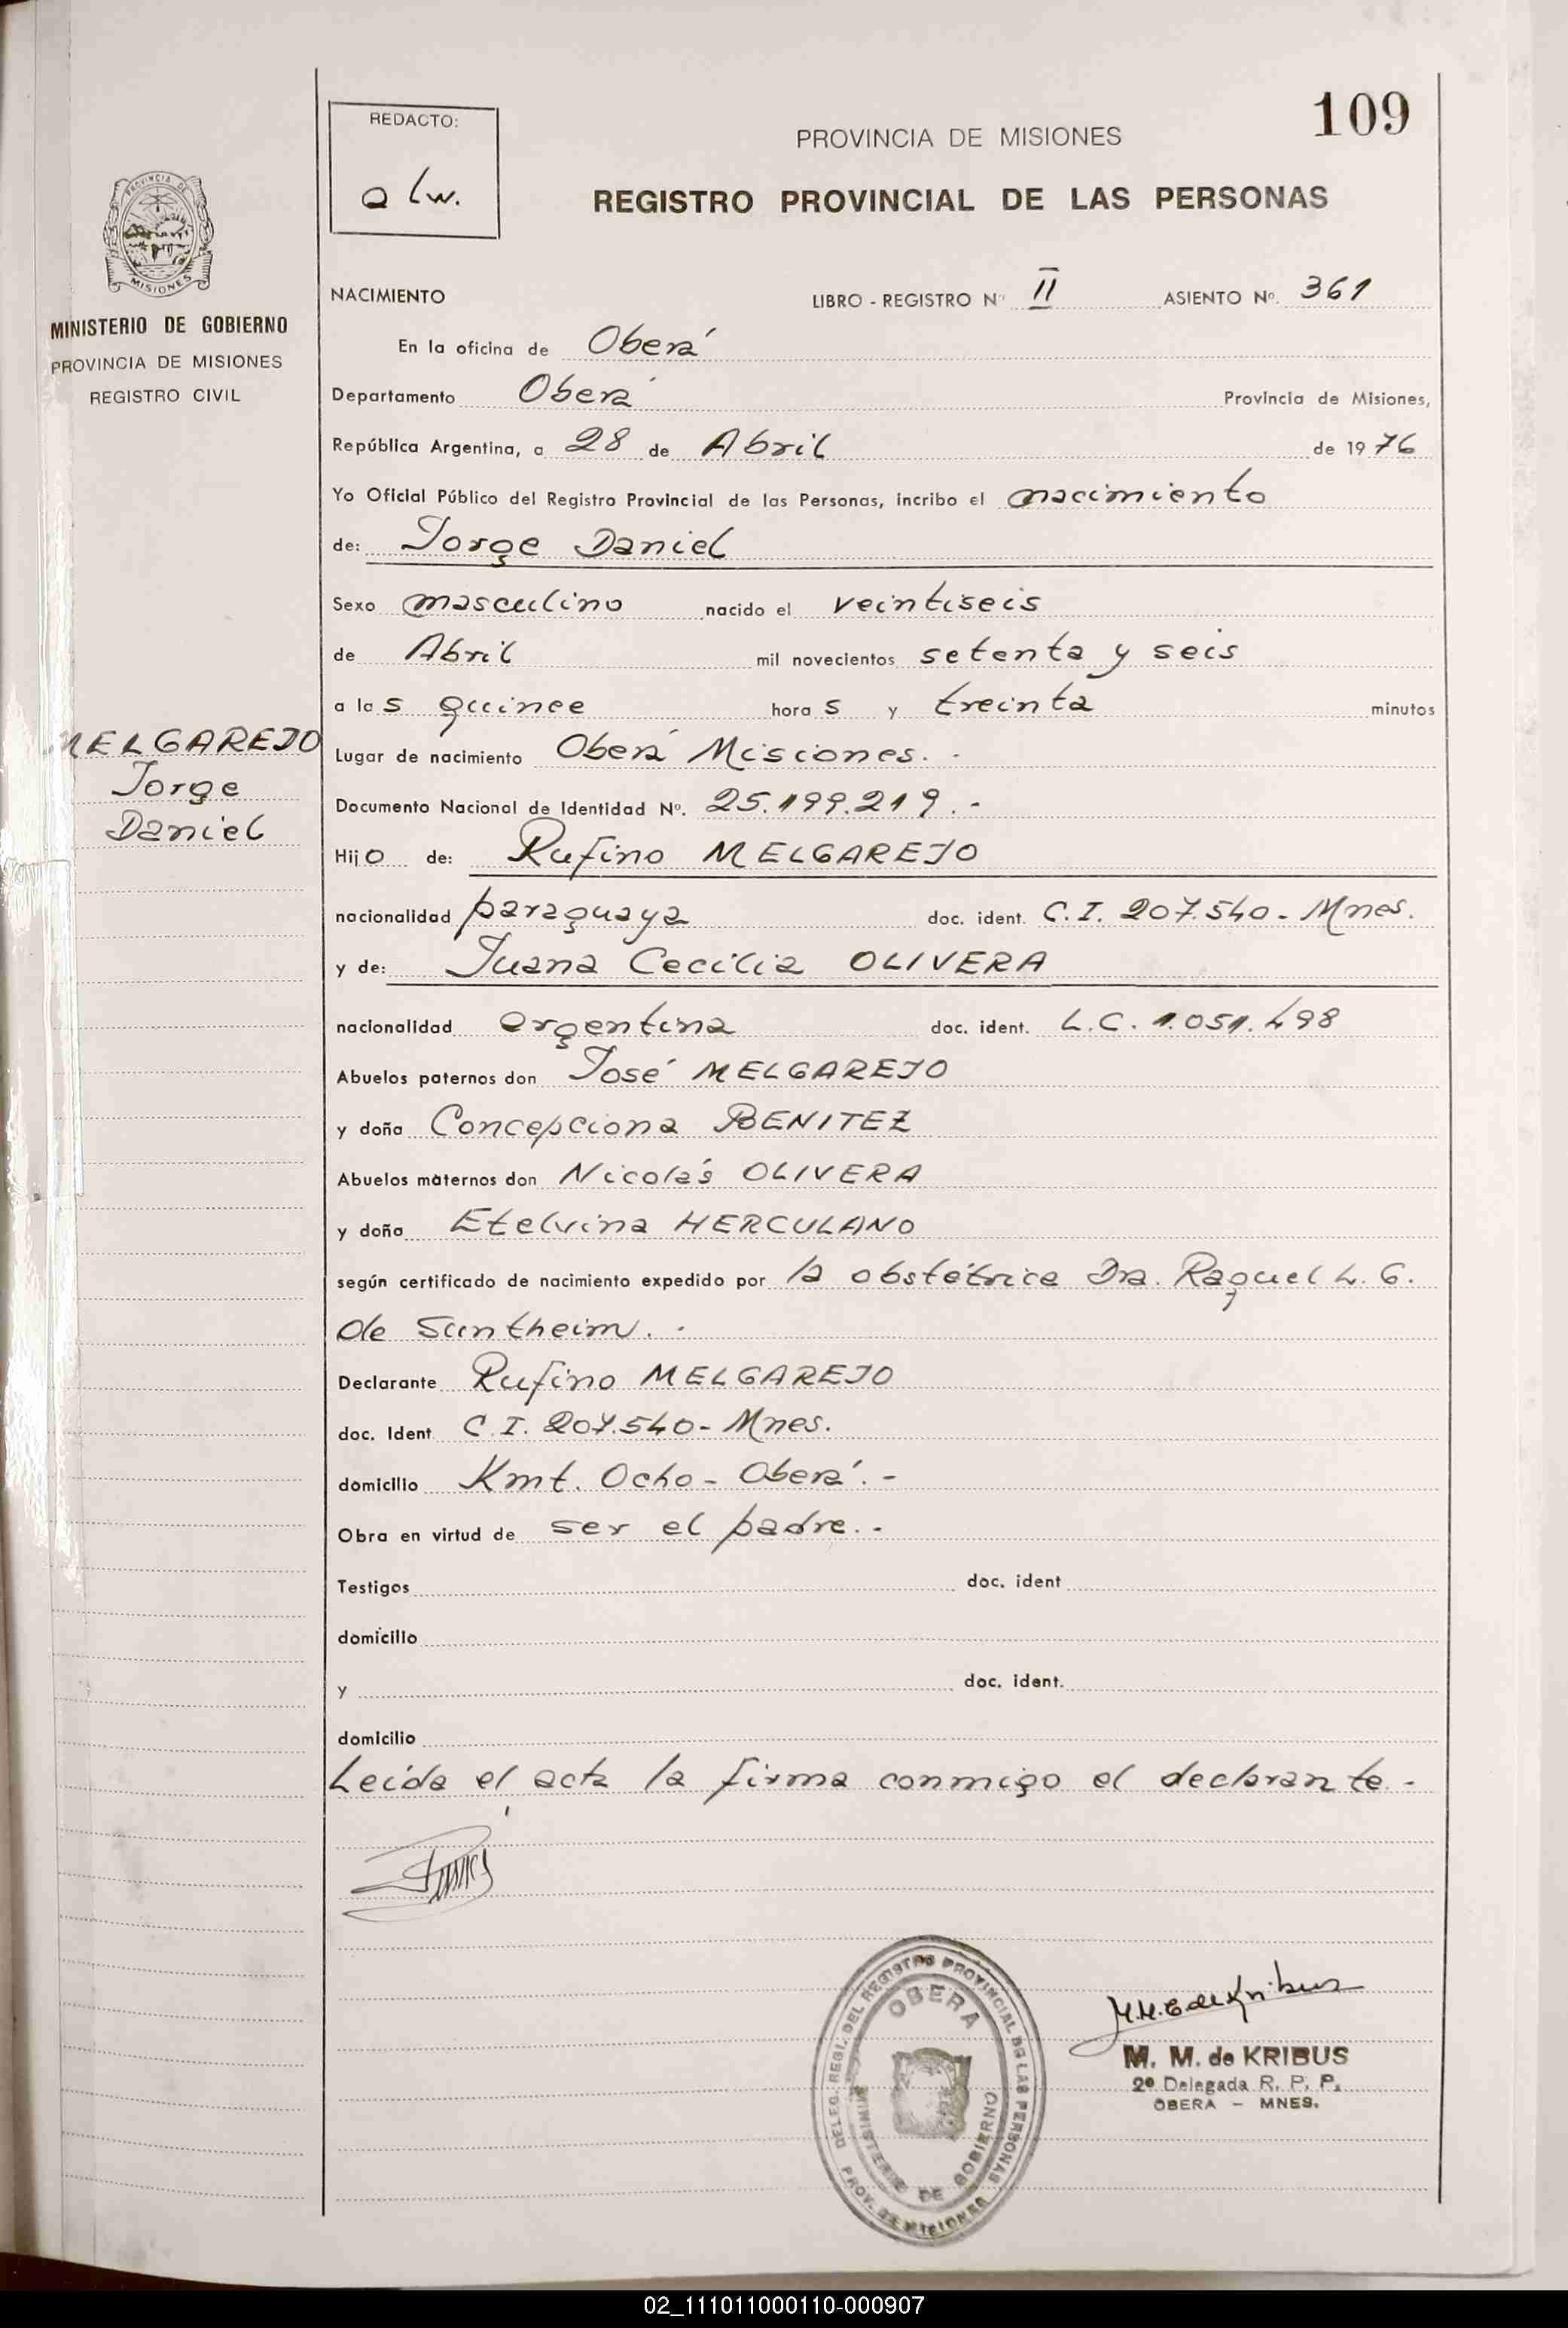 109
REDACTO:
a lw.
PROVINCIA DE MISIONES
REGISTRO PROVINCIAL DE LAS PERSONAS
PROVINCIA DE
MISIONES
MINISTERIO DE GOBIERNO
PROVINCIA DE MISIONES
REGISTRO CIVIL
MELGAREJO
Jorge
Daniel
NACIMIENTO LIBRO - REGISTRO Nº II ASIENTO Nº. 361
En la oficina de Oberá
Departamento Oberá Provincia de Misiones,
República Argentina, a 28 de Abril de 1976
Yo Oficial Público del Registro Provincial de las Personas, incribo el nacimiento
de: Jorge Daniel
Sexo masculino nacido el veintiseis
de Abril mil novecientos setenta y seis
a las quince horas y treinta minutos
Lugar de nacimiento Oberá Misiones. -
Documento Nacional de Identidad Nº. 25.199.219. -
Hijo de: Rufino MELGAREJO
nacionalidad paraguaya doc. ident. C.I. 207.540 - Mnes.
y de: Juana Cecilia OLIVERA
nacionalidad argentina doc. ident. L.C. 1.051.498
Abuelos paternos don José MELGAREJO
y doña Concepciona BENITEZ
Abuelos maternos don Nicolás OLIVERA
y doña Etelvina HERCULANO
según certificado de nacimiento expedido por la obstétrica Dra. Raquel L. G.
de Suntheim. -
Declarante Rufino MELGAREJO
doc. Ident C.I. 207.540 - Mnes.
domicilio Kmt. Ocho - Oberá. -
Obra en virtud de ser el padre. -
Testigos doc. ident
domicilio
y doc. ident.
domicilio
Leída el acta la firma conmigo el declarante. -
DELEG. REGI. DEL REGISTRO PROVINCIAL DE LAS PERSONAS
OBERA
MINISTERIO DE GOBIERNO
PROV. DE MISIONES
M. M. de KRIBUS
2º Delegada R. P. P.
OBERA - MNES.
02_111011000110-000907